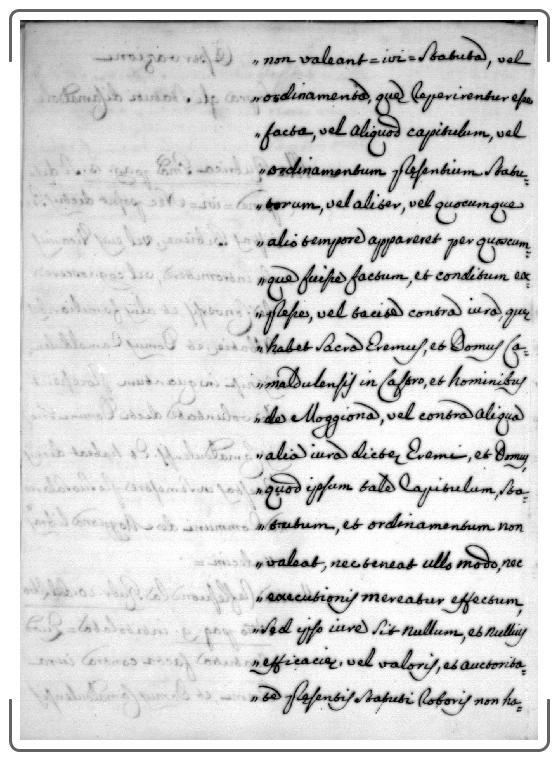 „ non valeant = ivi = Statuta, vel
„ ordinamenta, que reperirentur esse
„ facta, vel aliquod capitulum, vel
„ ordinamentum presentium statu=
„ torum, vel aliter, vel quocumque
„ alio tempore appareret per quoscum=
„ que fuisse factum, et conditum ex=
„ presse, vel tacite contra iura, que
„ habet Sacra Eremus, et Domus Ca=
„ maldulensis in Castro, et hominibus
„ de Moggiona, vel contra aliqua
„ alia iura dicte Eremi, et Domus,
„ quod ipsum tale Capitulum, sta=
„ tutum, et ordinamentum non
„ valeat, nec teneat ullo modo, nec
„ executionis mereatur effectum,
„ sed ipso iure sit nullum, et nullius
„ efficacie, vel valoris, et auctorita=
„ te presentis statuti roboris non ha=